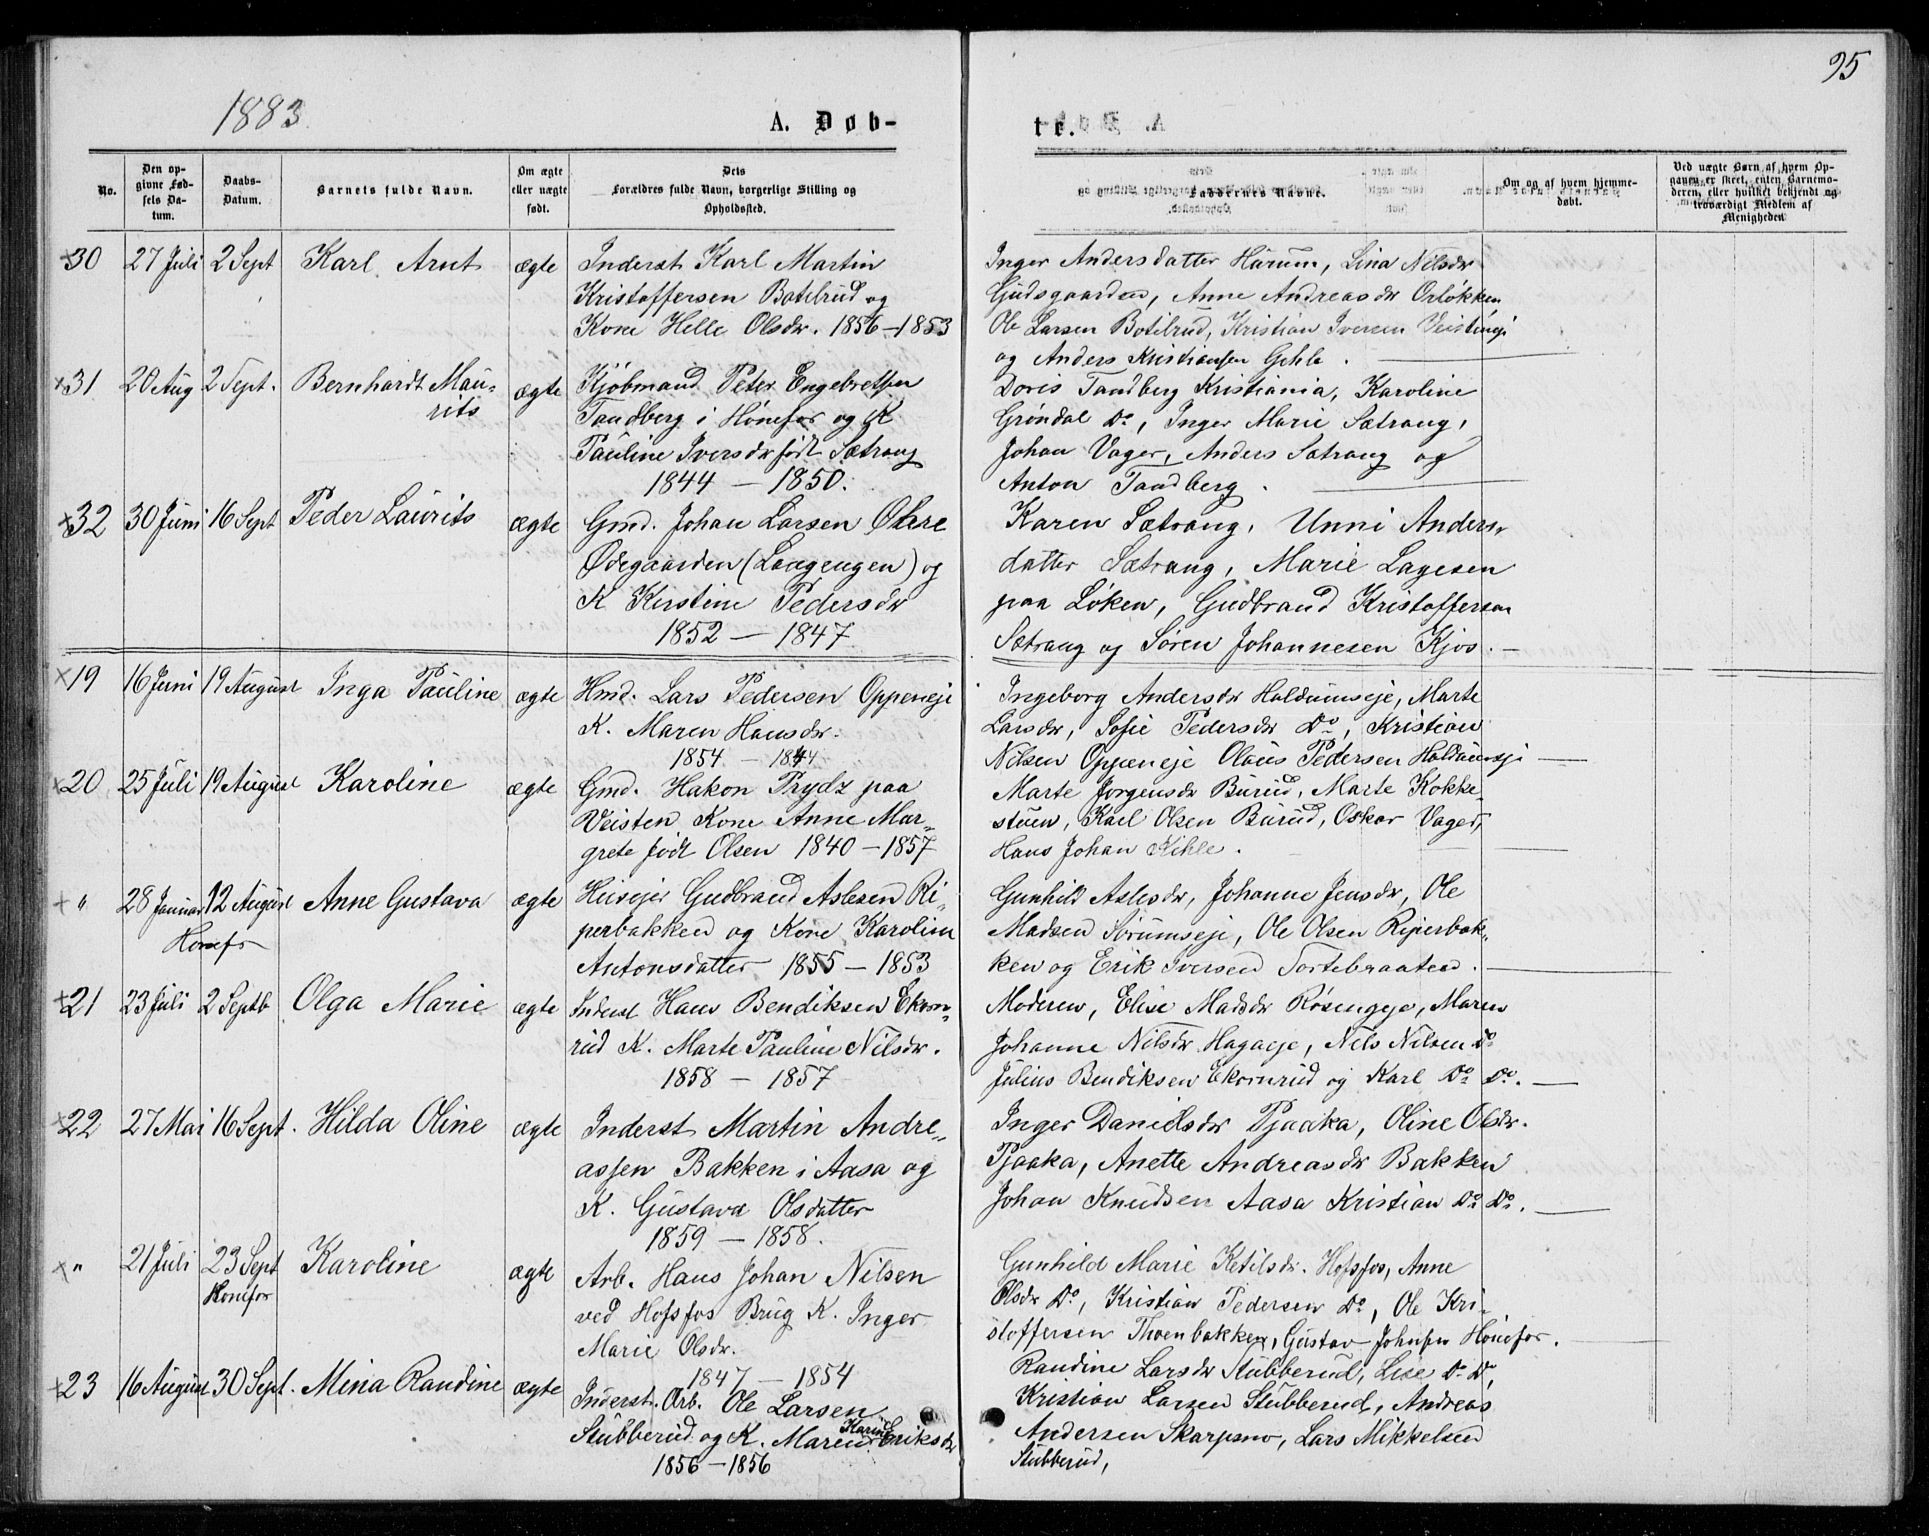 95
1883
A. Døb-
te.
No.
Den op-
givne Fød-
sels Da-
tum.
Daabs-
Datum.
Barnets fulde Navn.
Om ægte
eller uægte
født.
Dets
Forældres fulde Navn, borgerlige Stilling og
Opholdssted.
Faddernes Navne.
Om og af hvem hjemme-
døbt.
Ved uægte Børn, af hvem Op-
gaven er skeet, enten Barnemo-
deren, eller hvilket bekjendt og
troværdigt Medlem af
Menigheden
×30 27 Juli 2 Sept Karl Arnt ægte Inderst Karl Martin
Kristoffersen Botilrud og
Kone Helle Olsdr. 1856-1853
Inger Andersdatter Hårum, Lina Nilsdr
Gudsgaarden, Anne Andreasdr Orløkken
Ole Larsen Botilrud, Kristian Iversen
og Anders Kristiansen Gehle.
×31 20 Aug 2 Sept. Bernhardt Mau-
rits ægte Kjøbmand Peter Engebretsen
Tandberg i Hønefos og K
Pauline Iversdr født Sætrang
1844 - 1850.
Doris Tandberg Kristiania, Karoline
Grøndal Do, Inger Marie Sætrang,
Johan Vager, Anders Sætrang og
Anton Tandberg.
×32 30 Juni 16 Sept Peder Laurits ægte Gmd. Johan Larsen
Ødegaarden (Langengen) og
K Kirstine Pedersdr
1852 - 1847
Karen Sætrang, Unni Anders-
datter Sætrang, Marie Lagesen
paa Løken, Gudbrand Kristoffersen
Sætrang og Søren Johannesen Kjos.
×19 16 Juni 19 August Inga Pauline ægte Hmd. Lars Pedersen Oppeneje
K. Maren Hansdr.
1854 - 1844
Ingeborg Andersdr Haldumseje, Marte
Larsdr, Sofie Pedersdr Do, Kristian
Nilsen Oppeneje Olaus Pedersen Haldumseje
×20 25 Juli 19 August Karoline ægte Gmd. Hakon Prydz paa
Veisten Kone Anne Mar-
grete født Olsen 1840-1857
Marte Jørgensdr Burud, Marte Kokke-
stuen, Karl Olsen Burud, Oskar Vager,
Hans Johan Kihle.
× " 28 Januar 12 August Anne Gustava ægte Huseier Gudbrand Aslesen Ri-
Honefs
perbakken og Kone Karoline
Antonsdatter 1855 - 1853
Gunhild Aslesdr, Johanne Jensdr, Ole
Madsen Sørumseje, Ole Olsen Riperbak-
ken og Erik Iversen Tortebraaten.
×21 23 Juli 2 Septb Olga Marie ægte Inderst Hans Bendiksen Ekorn-
rud K. Marte Pauline Nilsdr.
1858 - 1857
Moderen, Elise Madsdr Røsengeje, Maren
Johanne Nilsdr Hagaeje, Nils Nilsen Do
Julius Bendiksen Ekornrud og Karl Do Do.
×22 27 Mai 16 Sept. Hilda Oline ægte Inderst Martin Andre-
assen Bakken i Aasa og
K. Gustava Olsdatter
1859 - 1858.
Inger Danielsdr Pjaaka, Oline Olsdr.
Pjaaka, Anette Andreasdr Bakken
Johan Knudsen Aasa Kristian Do Do.
× " 21 Juli 23 Sept Karoline ægte Arb. Hans Johan Nilsen
Honefos
ved Hofsfos Brug K. Inger
Marie Olsdr.
1847 - 1854
Gunhild Marie Ketilsdr. Hofsfos, Anne
Olsdr Do, Kristian Pedersen Do, Ole Kri-
stoffersen Thoenbakken, Gustav Johnsen Hønefos.
×23 16 August 30 Sept. Mina Randine ægte Inderst. Arb. Ole Larsen
Stubberud og K. Maren Karine Eriksdr
1856 - 1856
Randine Larsdr Stubberud, Lise Do Do,
Kristian Larsen Stubberud, Andreas
Andersen Skarpsno, Lars Mikkelsen
Stubberud,